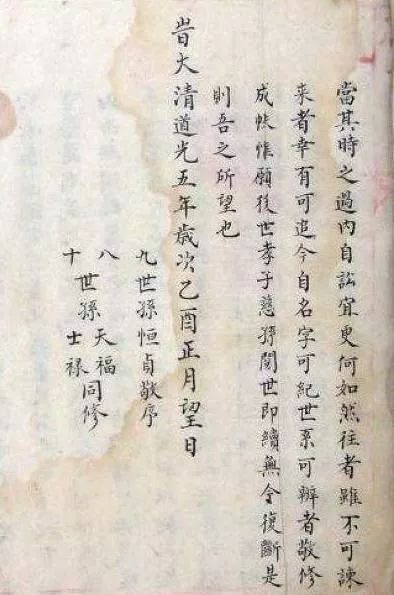 當其時之過內自訟宜更何如然往者雖不可諫
来者幸有可追今自名字可紀世系可辦者敬修
成帙惟願後世孝子慈孫閱世即續無令復斷是
則吾之所望也
旹大清道光五年歲次乙酉正月望日
九世孫恒貞敬序
八世孫天福同修
十世孫士禄同修